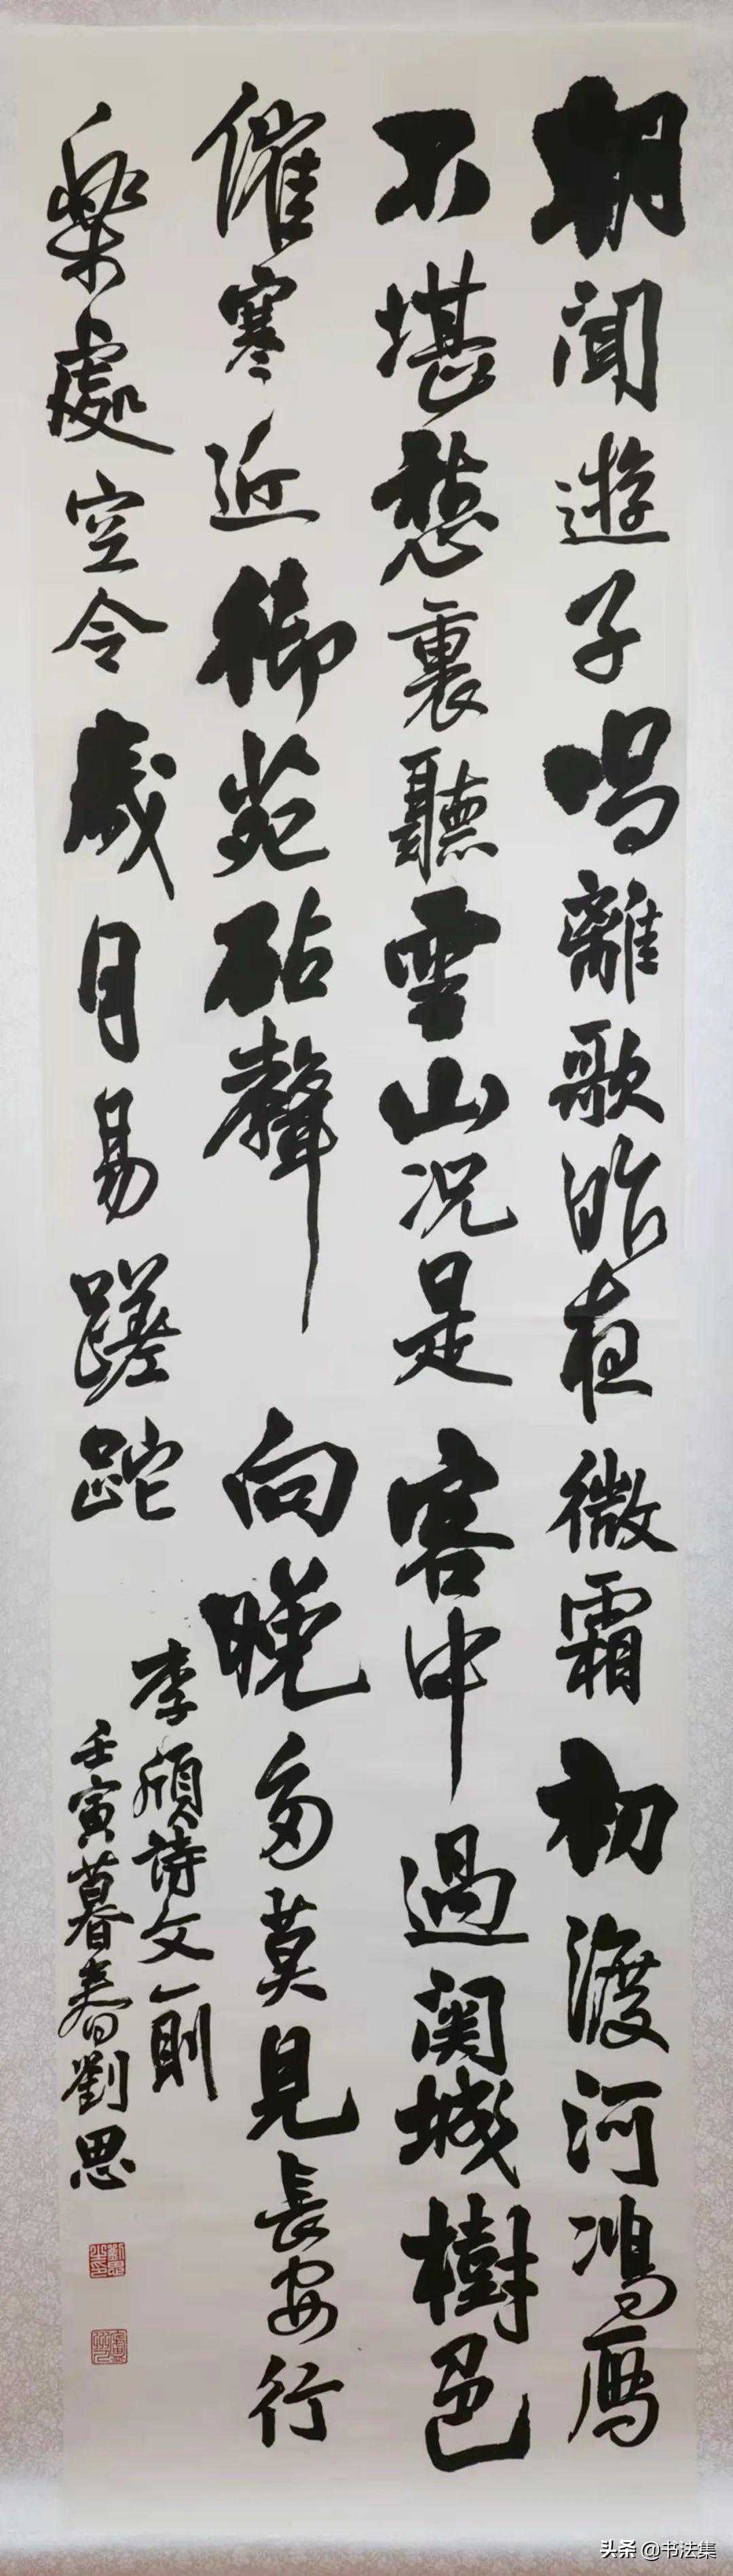 朝聞遊子唱離歌昨夜微霜初渡河鴻雁
不堪愁裏聽雲山況是客中過関城樹色
催寒近御苑砧聲向晚多莫見長安行
樂處空令歲月易蹉跎
李頎詩文一則
壬寅暮春劉思
头条 @书法集